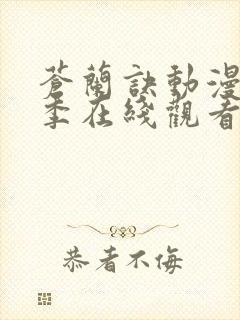 蒼蘭訣動漫
季在綫觀看
恭者不侮